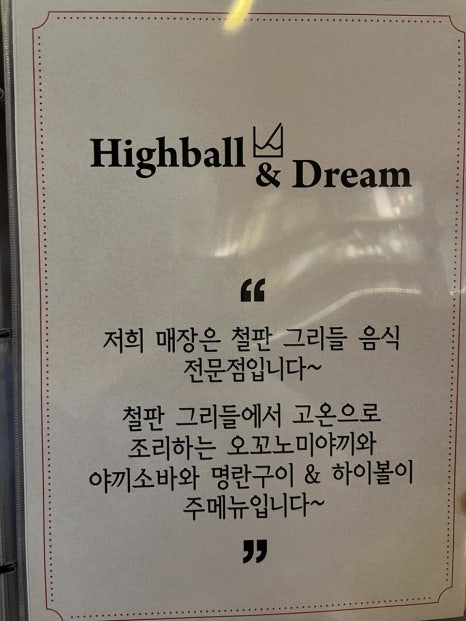 Highball
& Dream
“
저희 매장은 철판 그리들 음식
전문점입니다~
철판 그리들에서 고온으로
조리하는 오꼬노미야끼와
야끼소바와 명란구이 & 하이볼이
주메뉴입니다~
”